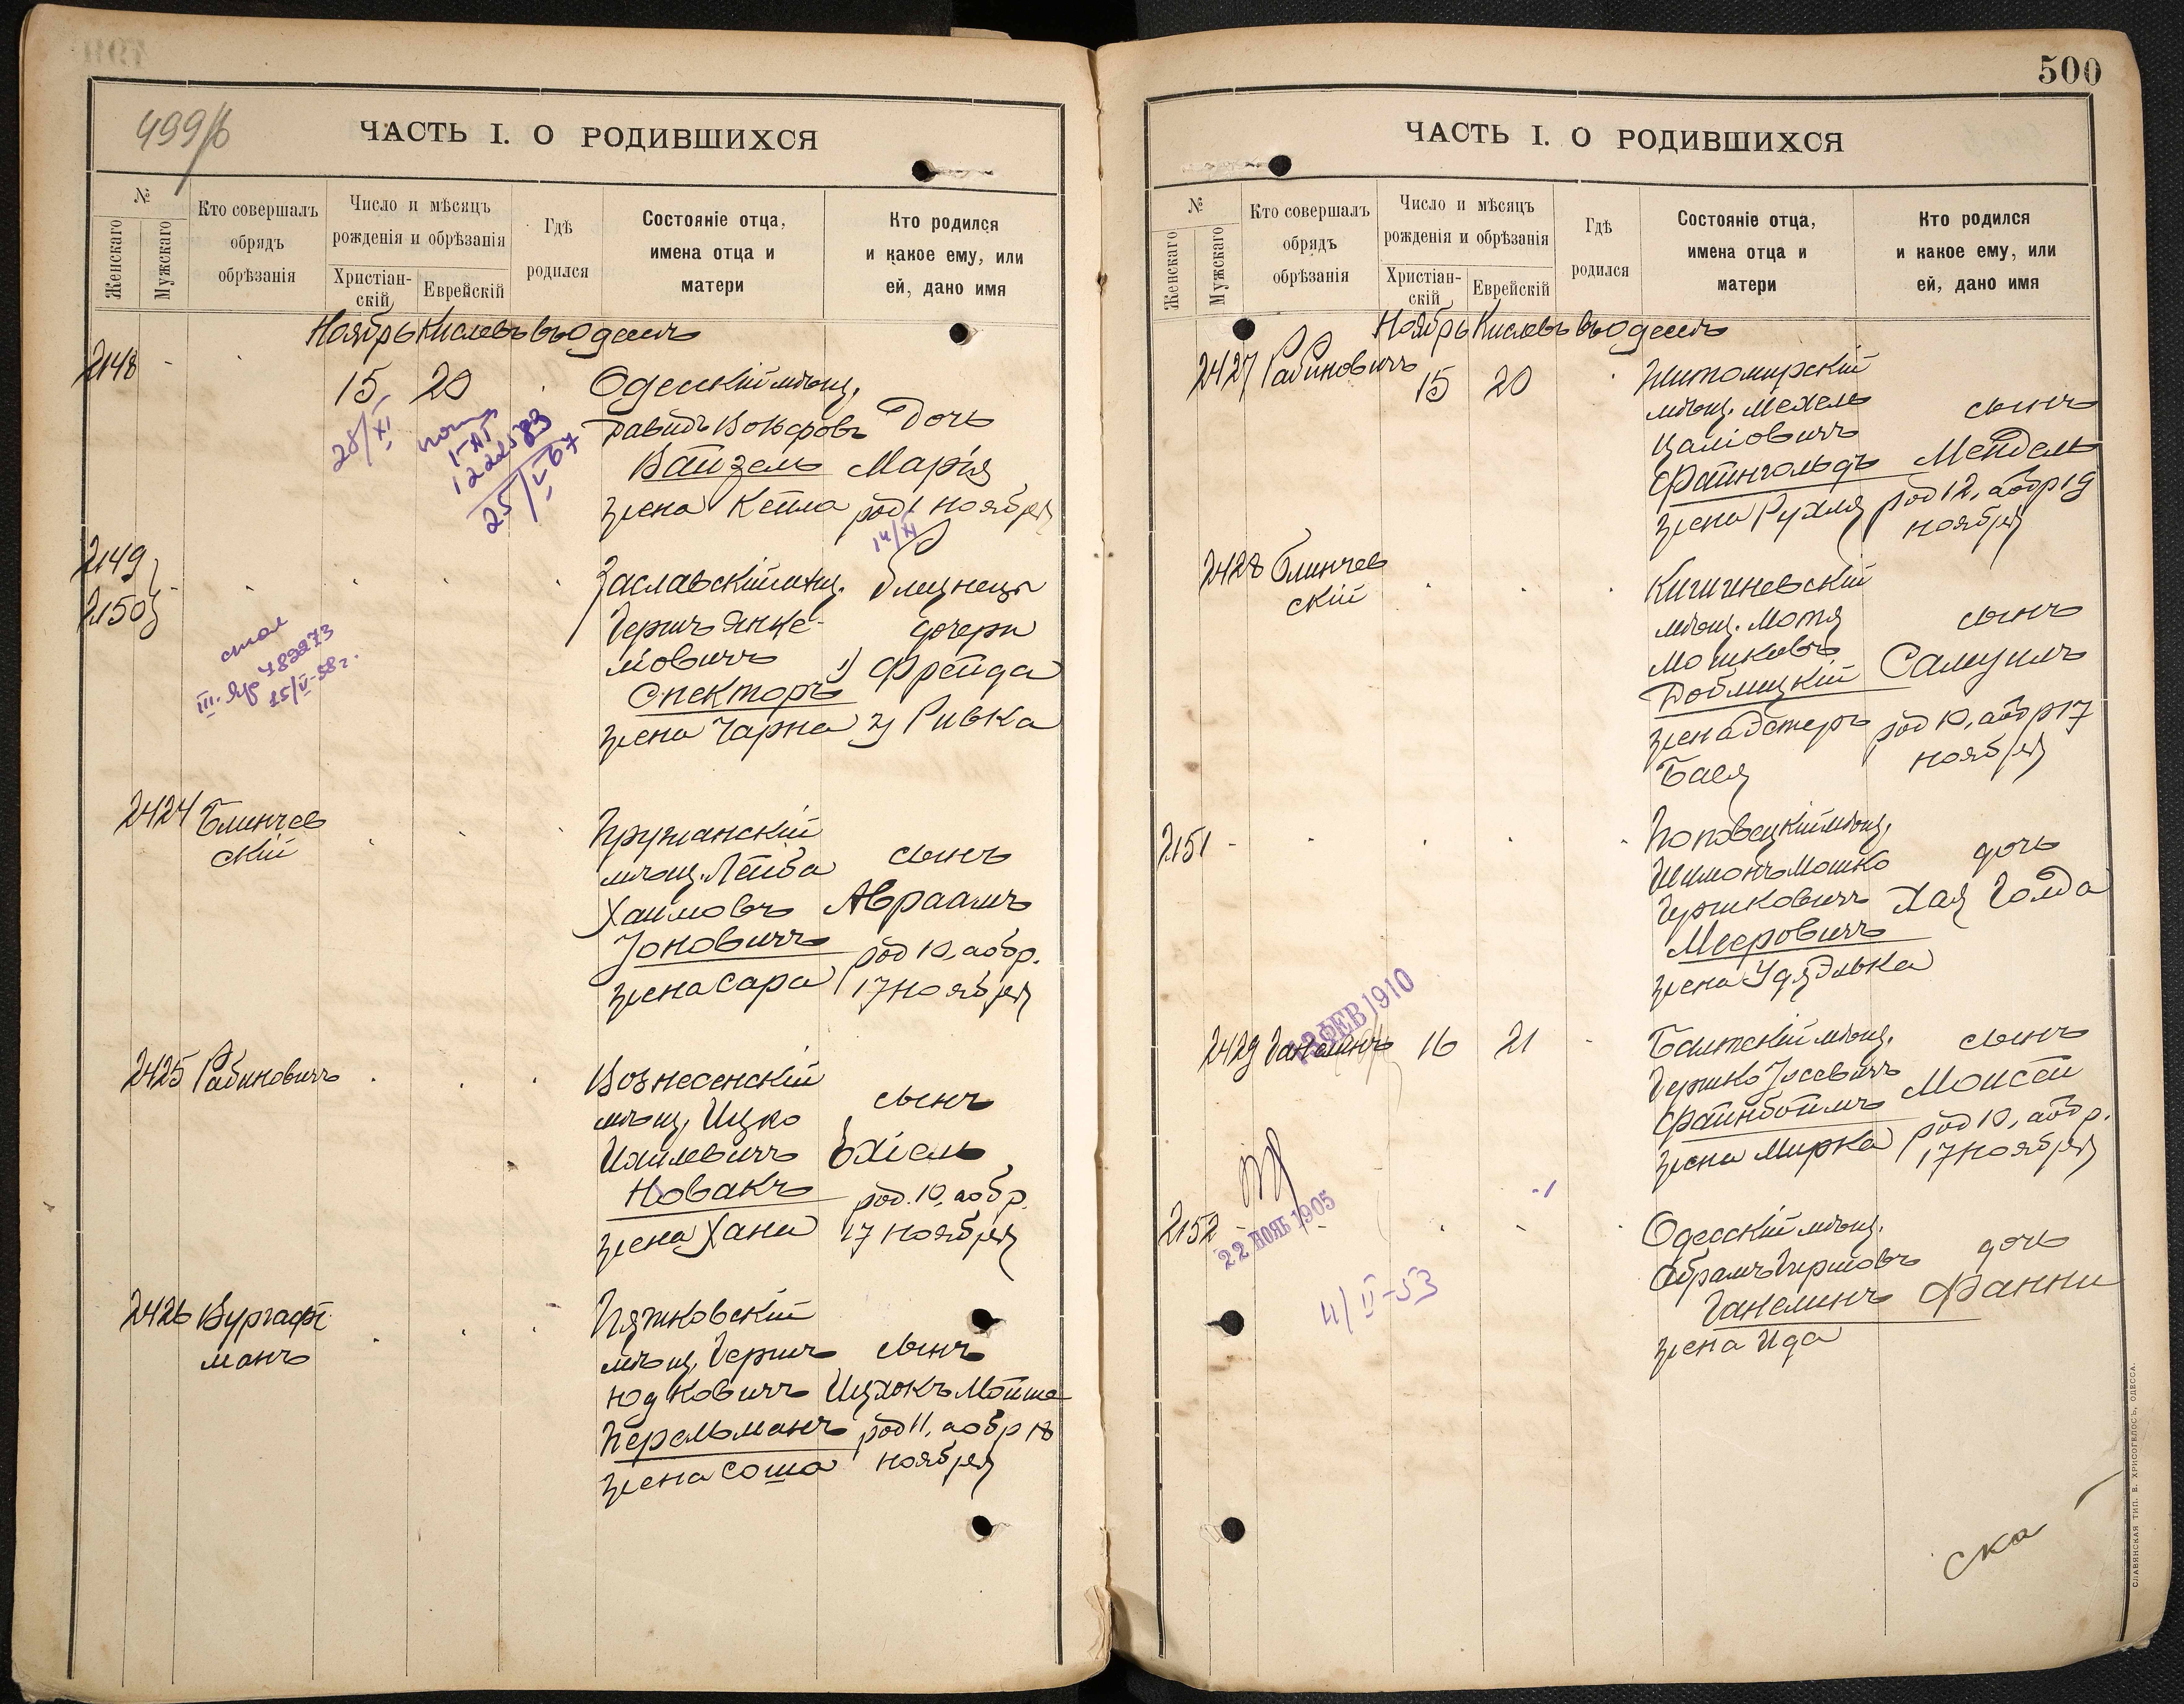 499/б
ЧАСТЬ I. О РОДИВШИХСЯ
№
Женскаго
Мужскаго
Кто совершалъ
обрядъ
обрѣзанія
Число и мѣсяцъ
рожденія и обрѣзанія
Христіан-
скій
Еврейскій
Гдѣ
родился
Состояніе отца,
имена отца и
матери
Кто родился
и какое ему, или
ей, дано имя
Ноябрь Кислевъ въ Одессѣ
2148
15 20
Одесскій мѣщ.
Давидъ Вольфовъ
Вайзель
жена Кейла
Дочь
Марія
род 1 ноября
28/XI
14/XI
25/V 67
2149
2150
Заславскій мѣщ.
Гершъ Янке-
левичъ
Спекторъ
жена Чарна
близнецы
дочери
1) Фрейда
2) Ривка
III-Яр 482273
15/V-58г.
2424 Блинчев
скій
Пружанскій
мѣщ. Лейба
Хаимовъ
Іоновичъ
жена Сара
сынъ
Авраамъ
род 10, аобр.
17 ноября
2425 Рабиновичъ
Вознесенскій
мѣщ. Ицко
Ихилевичъ
Новакъ
жена Хана
сынъ
Ехіель
род. 10, аобр.
17 ноября
2426 Вургафт
манъ
Пятковскій
мѣщ. Гершъ
Юдковичъ
Перельманъ
жена Соша
сынъ
Ицхокъ Мойше
род 11, аобр 18
ноября
500
ЧАСТЬ I. О РОДИВШИХСЯ
№
Женскаго
Мужскаго
Кто совершалъ
обрядъ
обрѣзанія
Число и мѣсяцъ
рожденія и обрѣзанія
Христіан-
скій
Еврейскій
Гдѣ
родился
Состояніе отца,
имена отца и
матери
Кто родился
и какое ему, или
ей, дано имя
Ноябрь Кислевъ въ Одессѣ
2427 Рабиновичъ
15 20
Житомирскій
мѣщ. Мехель
Файнгольдъ
жена Рухля
сынъ
Мендель
род 12, аобр 19
ноября
2428 Блинчев
скій
Кишиневскій
мѣщ. Мотя
Мошковъ
Доблицкій
жена Эстеръ
Бася
сынъ
Самуилъ
род 10, аобр 17
ноября
2151
Шимонъ Мошко
Гершковичъ
Мееровичъ
дочь
Хая Голда
13 ФЕВ 1910
2429 Ганелинъ 16 21
Балтскій мѣщ.
Гершко Іосевичъ
Файнбоймъ
жена Мирка
сынъ
Моисей
род 10, аобр.
17 ноября
22 НОЯБ 1905
2152
4/II-53
Одесскій мѣщ.
Абрамъ Гершовъ
Ганелинъ
жена Ида
дочь
Фанни
ска
СЛАВЯНСКАЯ ТИП. В. ХРИСОГЕЛОСЪ, ОДЕССА.